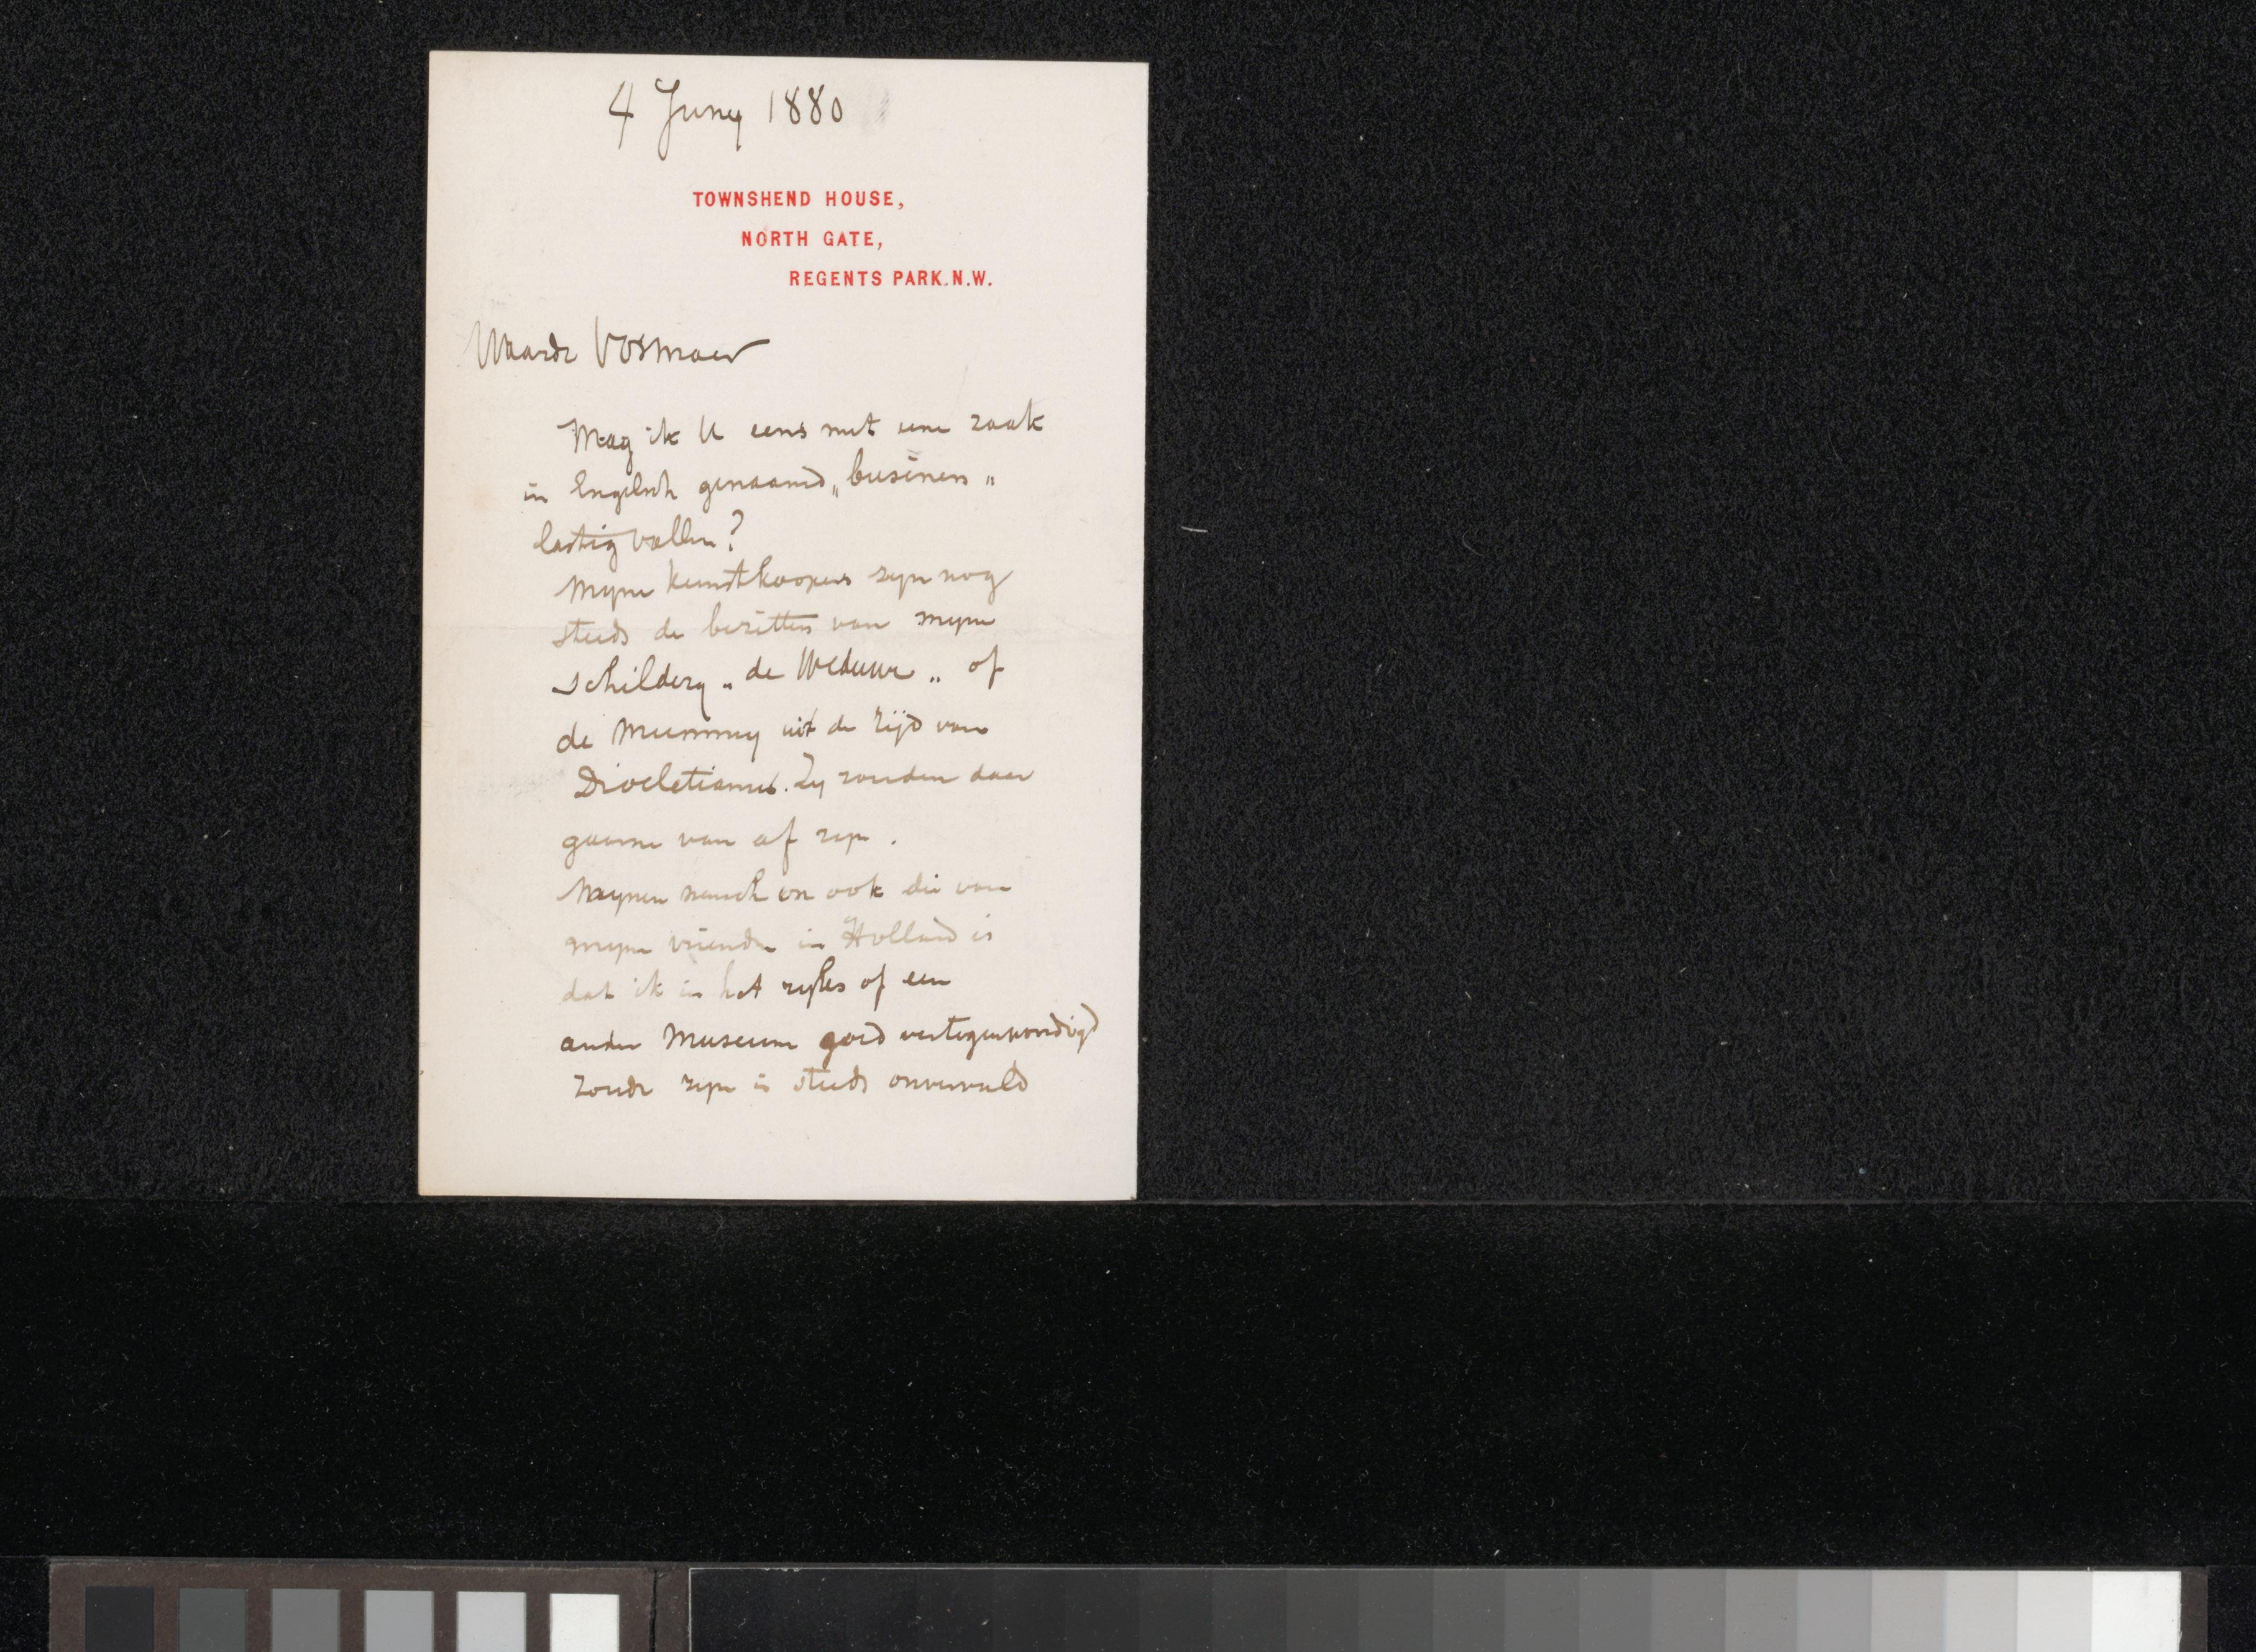 4 Juny 1880
TOWNSHEND HOUSE,
NORTH GATE,
REGENTS PARK.N.W.
Waarde Vosmaer
Mag ik U eens met eene zaak
in Engelsch genaamd „business„
lastig vallen?
Myne kunstkoopers zyn nog
steeds de bezitters van myne
schildery „de Weduwe„ of
de Mummy uit de tijd van
Diocletianus. Zy zouden daar
gaarne van af zyn.
Mynen wensch en ook die van
myne vrienden in Holland is
dat ik in het ryks of een
ander Museum goed vertegenwoordigd
zoude zyn is steeds onvervuld